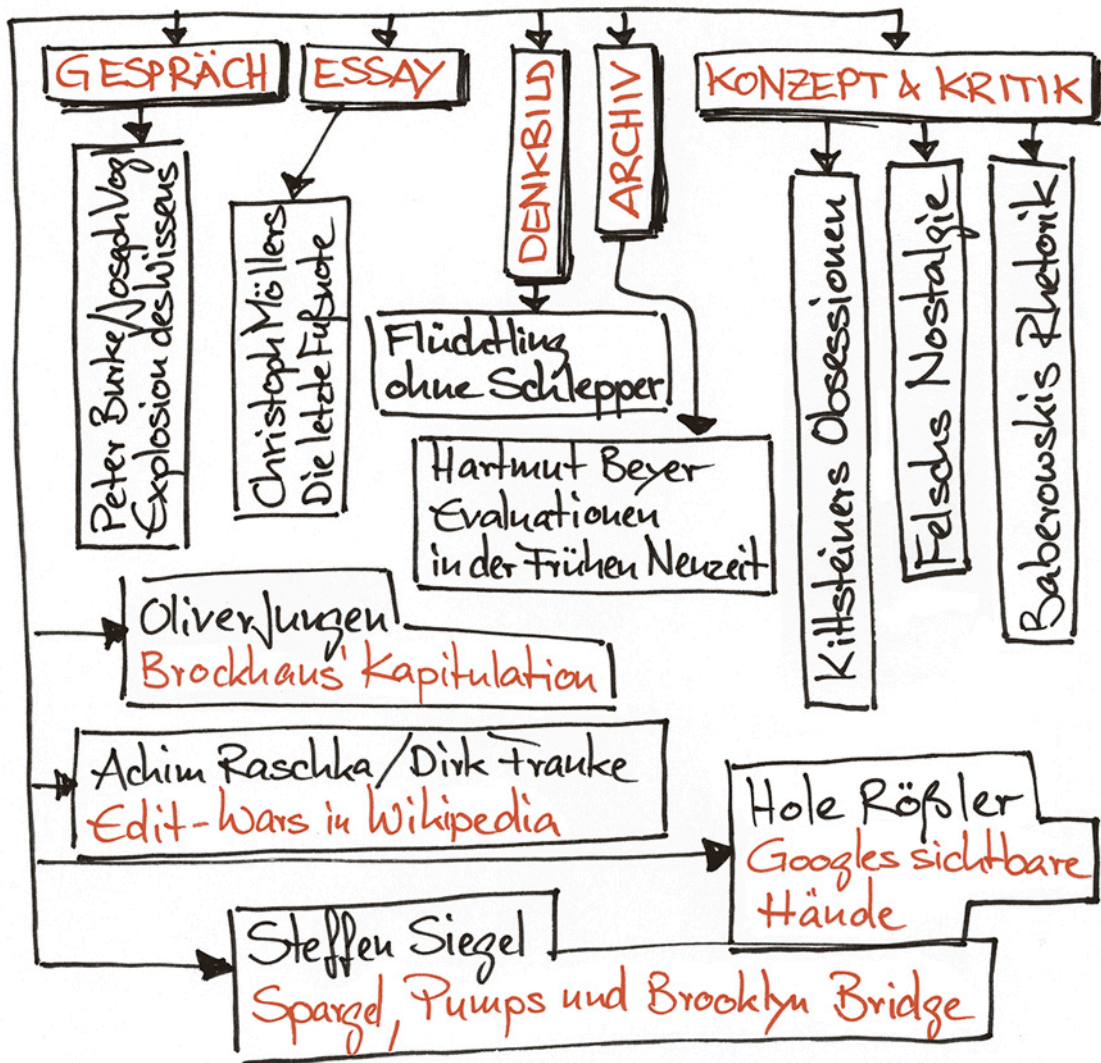 GESPRÄCH
Peter Burke/Joseph Vogl
Explosion des Wissens
ESSAY
Christoph Möllers
Die letzte Fußnote
DENKBILD
Flüchtling
ohne Schlepper
ARCHIV
Hartmut Beyer
Evaluationen
in der Frühen Neuzeit
KONZEPT & KRITIK
Kittsteiners Obsessionen
Felschs Nostalgie
Baberowskis Rhetorik
Oliver Jungen
Brockhaus' Kapitulation
Achim Raschka/Dirk Franke
Edit-Wars in Wikipedia
Hole Rößler
Googles sichtbare
Hände
Steffen Siegel
Spargel, Pumps und Brooklyn Bridge